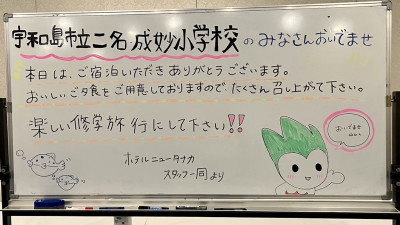 宇和島市立二名 成妙小学校 のみなさんおいでませ
本日は、ご宿泊いただきありがとうございます。
おいしいご夕食をご用意しておりますので、たくさん召し上がって下さい。
楽しい修学旅行にして下さい!!
ホテルニュータナカ
スタッフ一同より
おいでませ